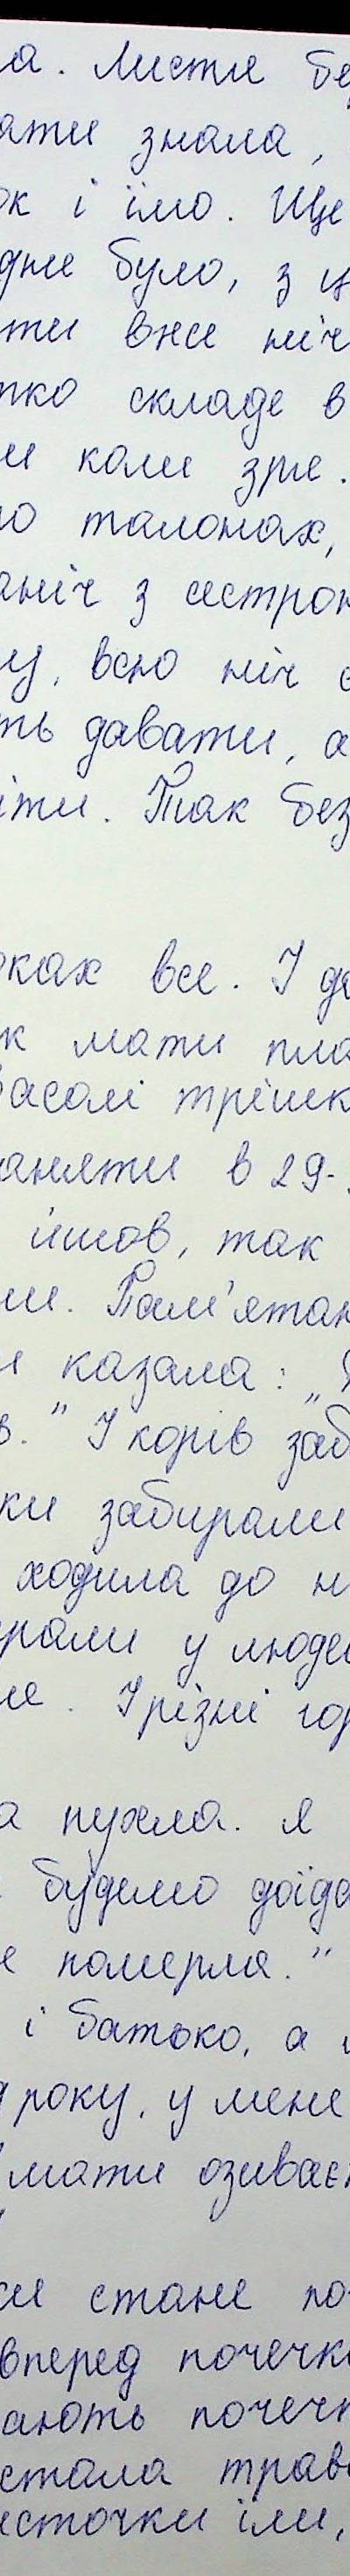 ла. Листя бе
ати знала,
ок і їмо. Ще
дне було, з ц
ти вже ніч
тко складе в
и коли зре.
о талонах,
аніч з сестрою
у, всю ніч с
ть давати, а
іти. Так без
ках все. І да
к мати пла
васолі трішк
аняти в 29-
йшов, так
ли. Пам'ятаю
и казала: „Я
в." І корів заб
ки забирали
ходила до н
рали у людей
ле. І різні гор
а пухла. Я
будемо доїда
е померла."
і батько, а
року, у мене
мати озиває
ки стане по
вперед почечк
ають почечк
стала трав
источки їли,